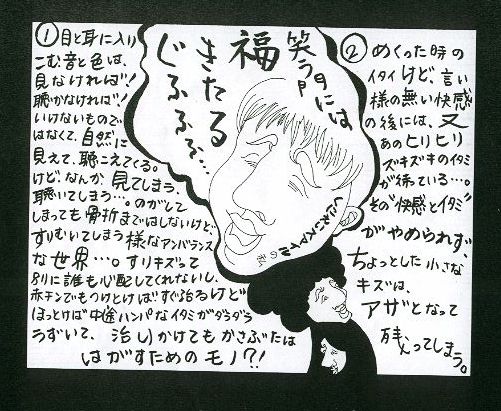 ①目と耳に入り
こむ音と色は、
見なければ!
聴かなければ!
いけないもので
はなくて、自然に
見えて、聴こえてくる。
けどなんか、見てしまう、
聴いてしまう…。のがして
しまっても骨折まではしないけど、
すりむいてしまう様なアンバランス
な世界…。すりキズって
別に誰も心配してくれないし、
赤チンでもつけとけばすぐ治るけど
ほっとけば中途ハンパなイタミがダラダラ
うずいて、治りかけてもかさぶたは
はがすためのモノ?!
笑う門には
福
きたる
ぐふふふ…
②めくった時の
イタイけど、言い
様の無い快感
の後には、又
あのヒリヒリ
ズキズキのイタミ
が待っている…。
その"快感とイタミ"
がやめられず、
ちょっとした小さな
キズは、
アザとなって
残ってしまう。